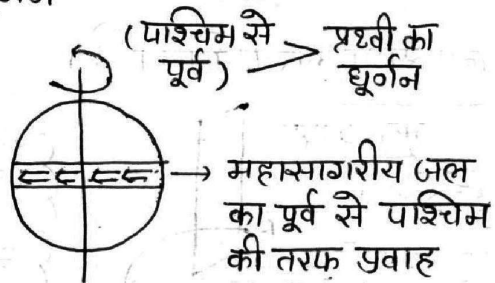 (पश्चिम से
पूर्व)
प्रथ्वी का
घूर्णन
महासागरीय जल
का पूर्व से पाश्चिम
की तरफ प्रवाह